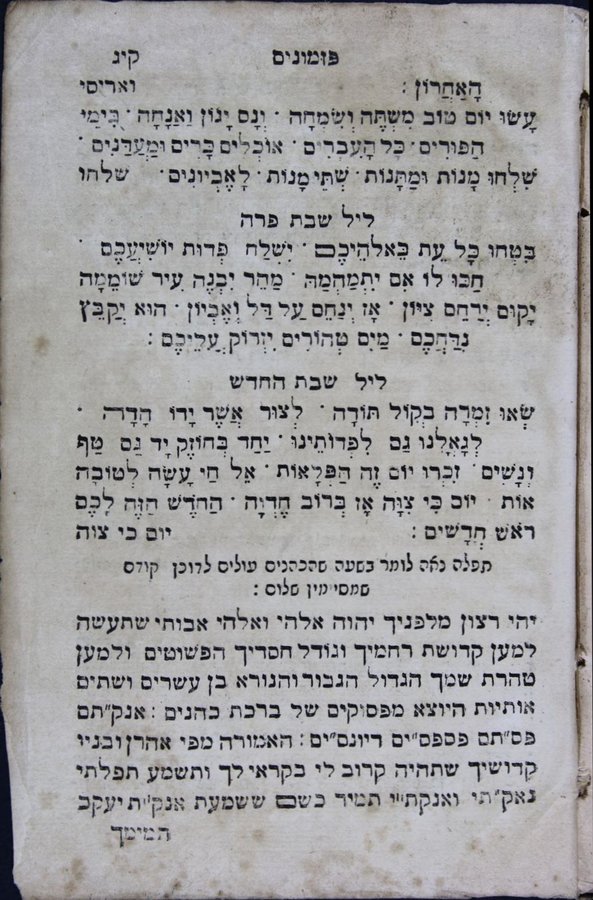 פזמונים קיג
הָאַחֲרוֹן : ואריסי
עָשׂוּ יוֹם טוֹב מִשְׁתֶּה וְשִׂמְחָה · וְנָס יָגוֹן וַאֲנָחָה · בִּימֵי
הַפּוּרִים · כָּל הָעִבְרִים · אוֹכְלִים כָּרִים וּמַעֲדַנִּים ·
שִׁלְחוּ מָנוֹת וּמַתָּנוֹת · שְׁתֵּי מָנוֹת · לָאֶבְיוֹנִים · שלחו
ליל שבת פרה
בִּטְחוּ כָל עֵת בֵּאלֹהֵיכֶם · יִשְׁלַח פְּדוּת יוֹשִׁיעֲכֶם ·
חַכּוּ לוֹ אִם יִתְמַהְמַהּ · מַהֵר יִבְנֶה עִיר שׁוֹמֵמָה
יָקוּם יְרַחֵם צִיּוֹן · אָז יְנַחֵם עַל דַּל וְאֶבְיוֹן · הוּא יְקַבֵּץ
נִדַּחֲכֶם · מַיִם טְהוֹרִים יִזְרוֹק עֲלֵיכֶם :
ליל שבת החדש
שְׂאוּ זִמְרָה בְּקוֹל תּוֹדָה · לְצוּר אֲשֶׁר יָדוֹ הָדָרָה ·
לְגָאֳלֵנוּ גַם לִפְדוֹתֵינוּ · יַחַד בְּחוֹזֶק יָד גַּם טַף
וְנָשִׁים · זִכְרוּ יוֹם זֶה הַפְּלָאוֹת · אֵל חַי עָשָׂה לְטוֹבָה
אוֹת · יוֹם כִּי צִוָּה אָז בְּרוֹב חֶדְוָה · הַחֹדֶשׁ הַזֶּה לָכֶם
רֹאשׁ חֳדָשִׁים : יום כי צוה
תפלה נאה לומר בשעה שהכהנים עולים לדוכן קודם
שמסיימין שלום :
יהי רצון מלפניך יהוה אלהי ואלהי אבותי שתעשה
למען קדושת רחמיך וגודל חסדיך הפשוטים ולמען
טהרת שמך הגדול הגבור והנורא בן עשרים ושתים
אותיות היוצא מפסוקים של ברכת כהנים : אנק״תם
פס״תם פספס״ים דיונס״ים : האמורה מפי אהרן ובניו
קדושיך שתהיה קרוב לי בקראי לך ותשמע תפלתי
נאק״תי ואנקת״י תמיד כשם ששמעת אנק״ת יעקב
תמימך